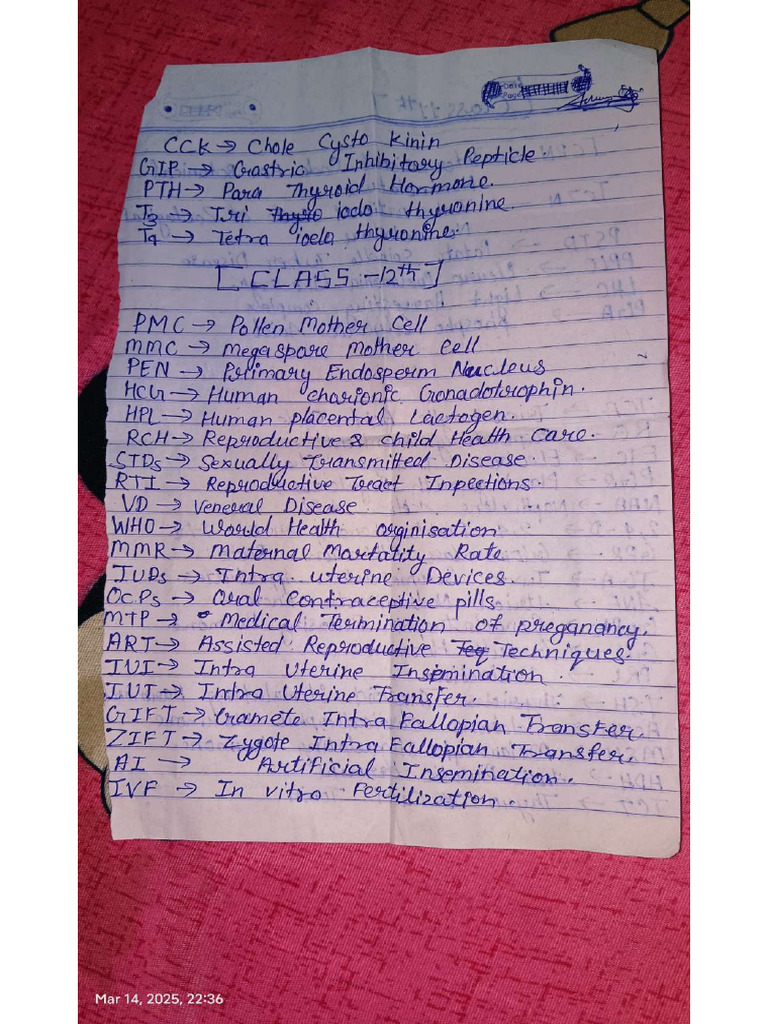 CCK → Chole Cysto Kinin
GIP → Gastric Inhibitory Pepticle.
PTH → Para Thyroid Hormone.
T3 → Tri iodo thyronine.
T4 → Tetra iodo thyronine.
[CLASS-12th]
PMC → Pollen Mother Cell
MMC → Megaspore Mother cell
PEN → Primary Endosperm Nucleus
HCG → Human chorionic Gonadotrophin.
HPL → Human placental Lactogen.
RCH → Reproductive & child Health Care.
STDs → Sexually Transmitted Disease.
RTI → Reproductive Tract Inpections.
VD → Veneral Disease.
WHO → World Health orginisation
MMR → Maternal Mortatity Rate
IUDs → Intra. uterine Devices.
OCPs → Oral Contraceptive pills.
MTP → Medical Termination of preganancy.
ART → Assisted Reproductive Techniques.
IUI → Intra Uterine Insemination.
IUT → Intra Uterine Transfer.
GIFT → Gamete Intra Fallopian Transfer.
ZIFT → Zygote Intra Fallopian Transfer.
AI → Artificial Insemination.
IVF → In vitro Fertilization.
Mar 14, 2025, 22:36